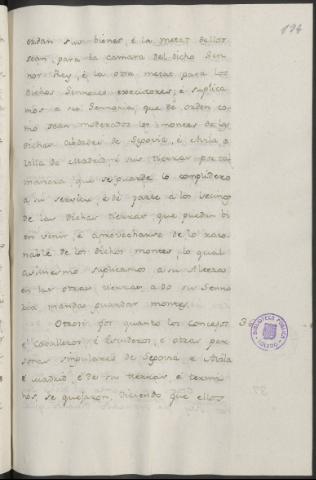 194
erdan sus bienes, é la metat dellos
sean, para la camara del dicho Sen-
nor Rey, é la otra metat para los
dichos Sennores executores; é suplica-
mos a su Sennoria, que dé orden co-
mo sean moderados los montes de las
dichas cibdades de Segovia, é Avila, é
Villa de Madrid, é sus tierras por tal
manera que se guarde lo complidero
a su servicio, é dé parte a los vecinos
de las dichas tierras que puedan bi-
en venir, é aprovecharse de lo razo-
nable de los dichos montes, lo qual
asimesmo suplicamos a su Alteza
en las otras tierras, a do su Senno-
ria mandas guardar montes.
Otrosi por quanto los concejos,
é Cavalleros, é Escuderos, é otras per-
sonas singulares de Segovia é Avila
é Madrid, é de sus tierras, é termi-
nos, se quejaron, diciendo que ellos
BIBLIOTECA PÚBLICA
TOLEDO